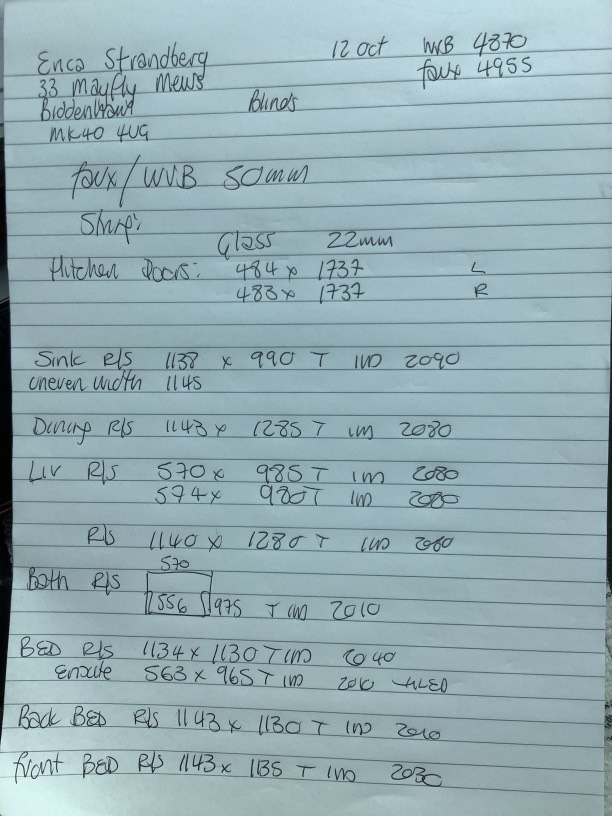 Enca Strandberg 12 Oct WVB 4870
33 Mayfly Mews faux 4955
Biddenham Blinds
MK40 4UG
faux/WVB 50mm
Shap:
Glass 22mm
Kitchen Doors: 484 x 1737 L
483 x 1737 R
Sink R/S 1138 x 990 T IM 2090
uneven width 1145
Dining R/S 1143 x 1285 T IM 2080
Liv R/S 570 x 985 T IM 2080
574 x 980 T IM 2080
R/S 1140 x 1280 T IM 2080
570
Bath R/S 556 975 T IM 2010
BED R/S 1134 x 1130 T IM 2040
Ensuite 563 x 965 T IM 2010
Back BED R/S 1143 x 1130 T IM 2010
front BED R/S 1143 x 1135 T IM 2030